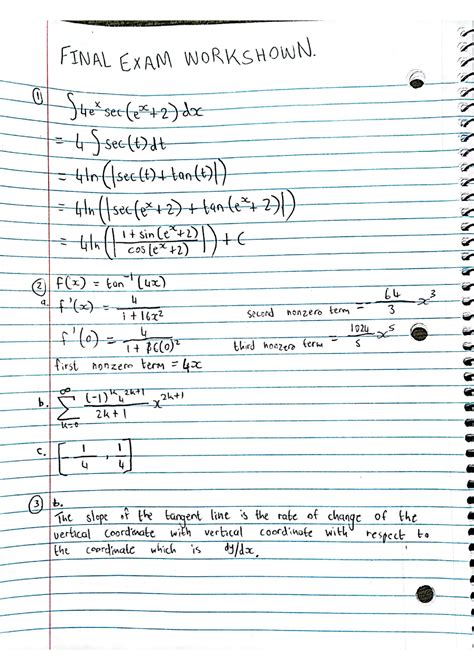 FINAL EXAM WORKSHOWN.
① ∫4eˣ sec(eˣ+2)dx
= 4 ∫ sec(t)dt
= 4ln(|sec(t)+tan(t)|)
= 4ln(|sec(eˣ+2)+tan(eˣ+2)|)
= 4ln(|(1+sin(eˣ+2))/(cos(eˣ+2))|)+C
② f(x) = tan⁻¹(4x)
a. f'(x) = 4/(1+16x²)
second nonzero term = -64/3 x³
f'(0) = 4/(1+16(0)²)
third nonzero term = 1024/5 x⁵
first nonzero term = 4x
b. ∞ Σ k=0 ((-1)ᵏ4²ᵏ⁺¹)/(2k+1) x²ᵏ⁺¹
c. [-1/4, 1/4]
③ b.
The slope of the tangent line is the rate of change of the
vertical coordinate with vertical coordinate with respect to
the coordinate which is dy/dx.